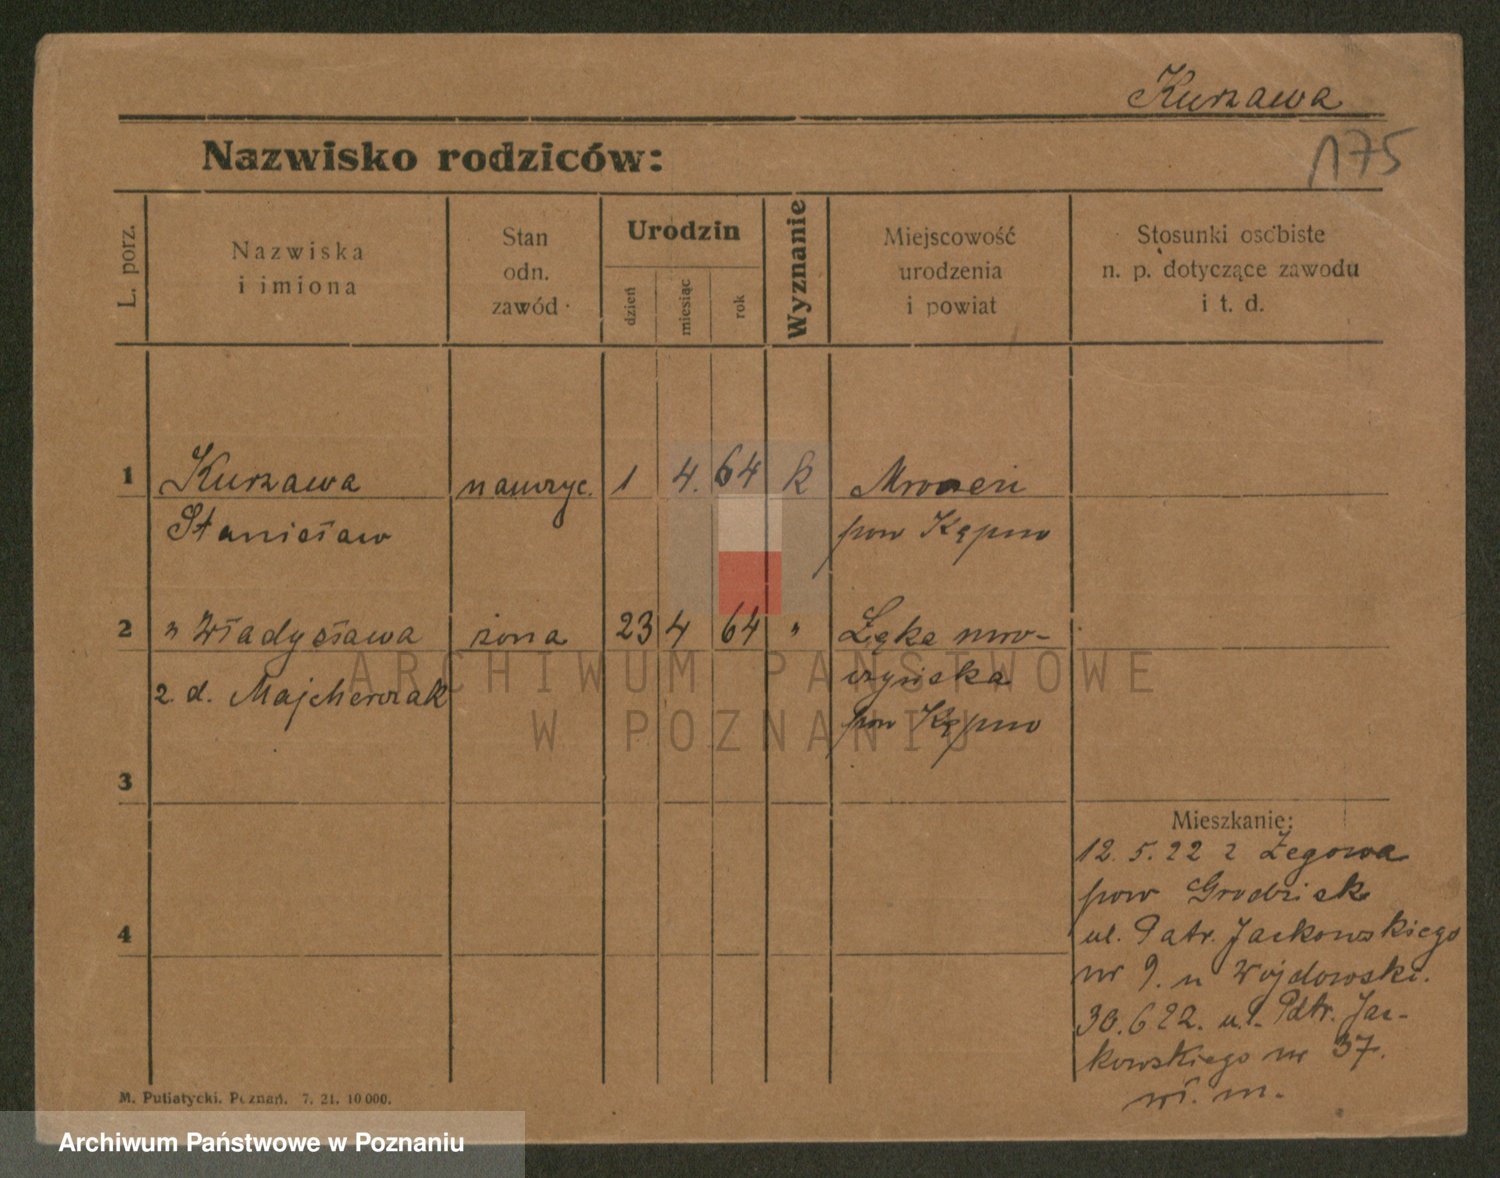 Kurzawa
175
Nazwisko rodziców:
L. porz.
Nazwiska
i imiona
Stan
odn.
zawód
Urodzin
dzień
miesiąc
rok
Wyznanie
Miejscowość
urodzenia
i powiat
Stosunki osobiste
n. p. dotyczące zawodu
i t. d.
1 Kurzawa nauczyc. 1 4. 64 k Mroczeń
Stanisław pow Kępno
2 " Władysława żona 23 4 64 " Łęka mro-
2. d. Majcherczak czyńska
pow Kępno
3
4
Mieszkanie:
12. 5. 22 z Żegowa
pow Grodzisk
ul. Patr. Jackowskiego
nr 9. u Wojdowski.
30. 6 22. ul. Patr. Jac-
kowskiego nr 37.
wł. m.
M. Putiatycki. Poznań. 7. 21. 10 000.
ARCHIWUM PAŃSTWOWE
W POZNANIU
Archiwum Państwowe w Poznaniu